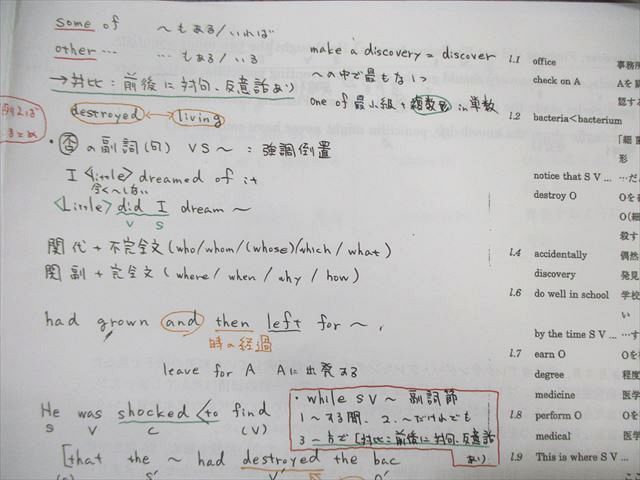 some of 〜もある/いれば
other … …もある/いる
→対比:前後に対句、反意語あり
destroyed ↔ living
make a discovery = discover
〜の中で最も
one of 最上級 + 複数名 in 単数
・否の副詞(句) VS〜:強調倒置
I <little> dreamed of it
全く〜しない
<Little> did I dream 〜
V S
関代+不完全文(who/whom/(whose)/which/what)
関副+完全文(where/when/why/how)
had grown and then left for 〜,
時の経過
leave for A Aに出発する
He was shocked <to find
S V C (V)
[that the 〜 had destroyed the bac
S' V' O'
・while SV〜 副詞節
1〜する間、2.〜だけれども
3 一方で[対比:前後に対句、反意語
あり)
l.1 office 事務所
check on A Aを
認する
l.2 bacteria<bacterium
「細菌
形
notice that S V … …だ
destroy O Oを
O(細
殺す
l.4 accidentally 偶然
discovery 発見
l.6 do well in school 学校
い
by the time S V … …す
l.7 earn O Oを
degree 程度
medicine 医学
l.8 perform O Oを
medical 医学
l.9 This is where S V …